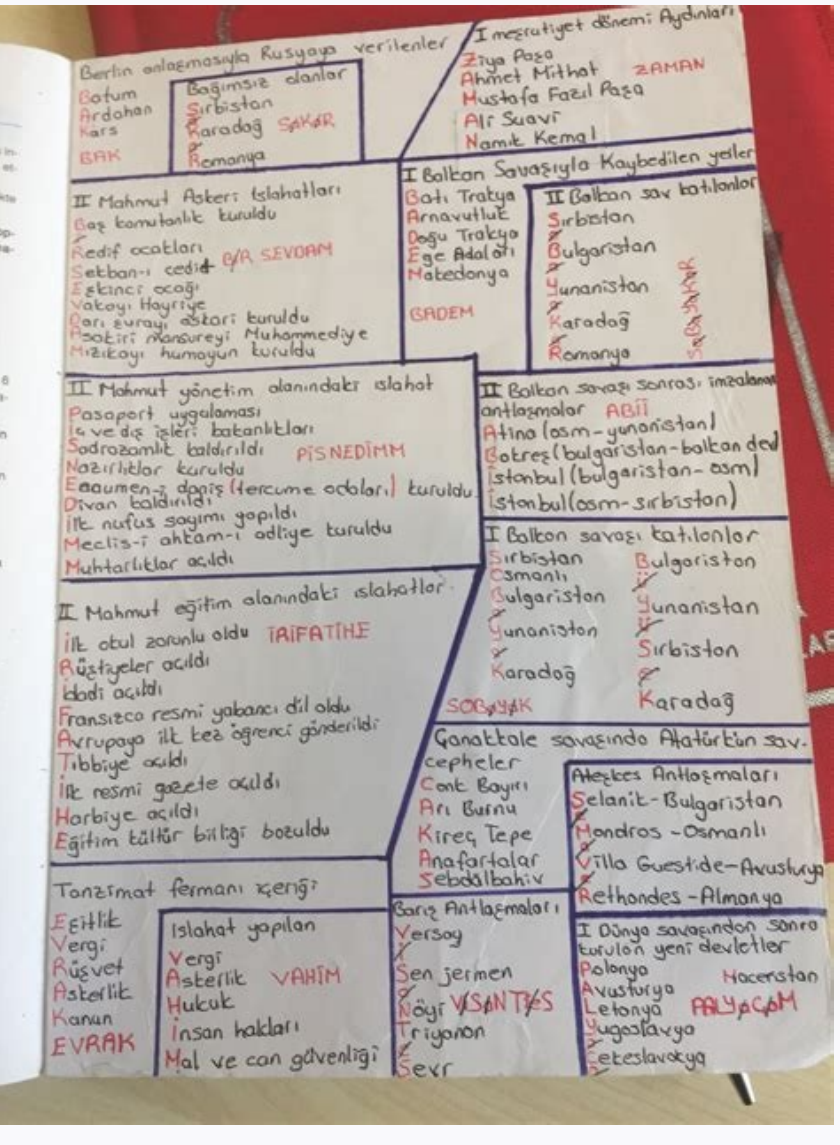 Berlin anlaşmasıyla Rusyaya verilenler
Batum
Ardahan
Kars
BAK
Bağımsız olanlar
Sırbistan
Karadağ SAKAR
Romanya
I meşrutiyet dönemi Aydınları
Ziya Paşa
Ahmet Mithat ZAMAN
Mustafa Fazıl Paşa
Ali Suavi
Namık Kemal
II Mahmut Askeri Islahatları
Baş komutanlık kuruldu
Redif ocakları
Sekban-ı cedit BİR SEVDAM
Eşkinci ocağı
Vakayı Hayriye
Darı şurayı askari kuruldu
Asakiri mansureyi Muhammediye
Mızıkayı humayun kuruldu
I Balkan Savaşıyla Kaybedilen yerler
Batı Trakya
Arnavutluk
Doğu Trakya
Ege Adaları
Makedonya
BADEM
II Balkan sav katılanlar
Sırbistan
Bulgaristan
Yunanistan
Karadağ
Romanya
SABAYAKAR
II Mahmut yönetim alanındaki ıslahat
Pasaport uygulaması
İç ve dış işleri bakanlıkları
Sadrazamlık kaldırıldı PİSNEDİMM
Nazırlıklar kuruldu
Encumen-i daniş (tercume odaları) kuruldu
Divan kaldırıldı
İlk nufus sayımı yapıldı
Meclis-i ahkam-ı adliye kuruldu
Muhtarlıklar açıldı
II Balkan savaşı sonrası imzalanan
antlaşmalar ABİİ
Atina (osm-yunanistan)
Bokreş (bulgaristan-balkan dev)
İstanbul (bulgaristan-osm)
İstanbul (osm-sırbistan)
I Balkan savaşı katılanlar
Sırbistan
Osmanlı
Bulgaristan
Yunanistan
Karadağ
SOBAYAK
Bulgaristan
Yunanistan
Sırbistan
Karadağ
II Mahmut eğitim alanındaki ıslahatlar.
İlk okul zorunlu oldu İRİFATİHE
Rüştiyeler açıldı
İdadi açıldı
Fransızca resmi yabancı dil oldu
Avrupaya ilk kez öğrenci gönderildi
Tıbbiye açıldı
İlk resmi gazete açıldı
Harbiye açıldı
Eğitim kültür birliği bozuldu
Çanakkale savaşında Atatürk'ün sav.
cepheler
Conk Bayırı
Arı Burnu
Kireç Tepe
Anafartalar
Sebdülbahiv
Ateşkes Antlaşmaları
Selanik-Bulgaristan
Mondros -Osmanlı
Villa Guestide-Avusturya
Rethondes -Almanya
Tanzimat fermanı içeriği
Eşitlik
Vergi
Rüşvet
Askerlik
Kanun
EVRAK
Islahat yapılan
Vergi
Asterlik VAHİM
Hukuk
İnsan hakları
Mal ve can güvenliği
Barış Antlaşmaları
Versay
Sen jermen
Nöyi VİSANTİES
Triyanon
Sevr
I Dünya savaşından sonra
kurulan yeni devletler
Polonya Macerıstan
Avusturya
Letonya
Yugoslavya
Çekeslavakya